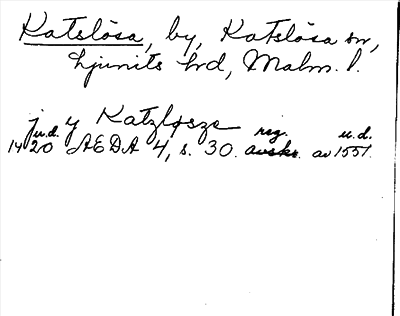 Katslösa, by, Katslösa sn,
Ljunits hrd, Malm. l.
j y Katzløsze
1420 u.d. ÆDA 4, s. 30. reg. avskr. av 1551 u.d.